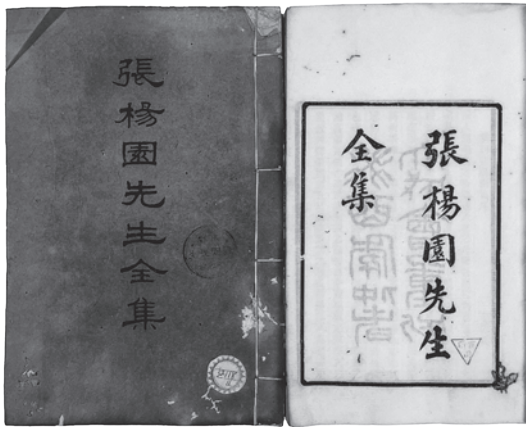 張楊園先生全集
張楊園先生
全集